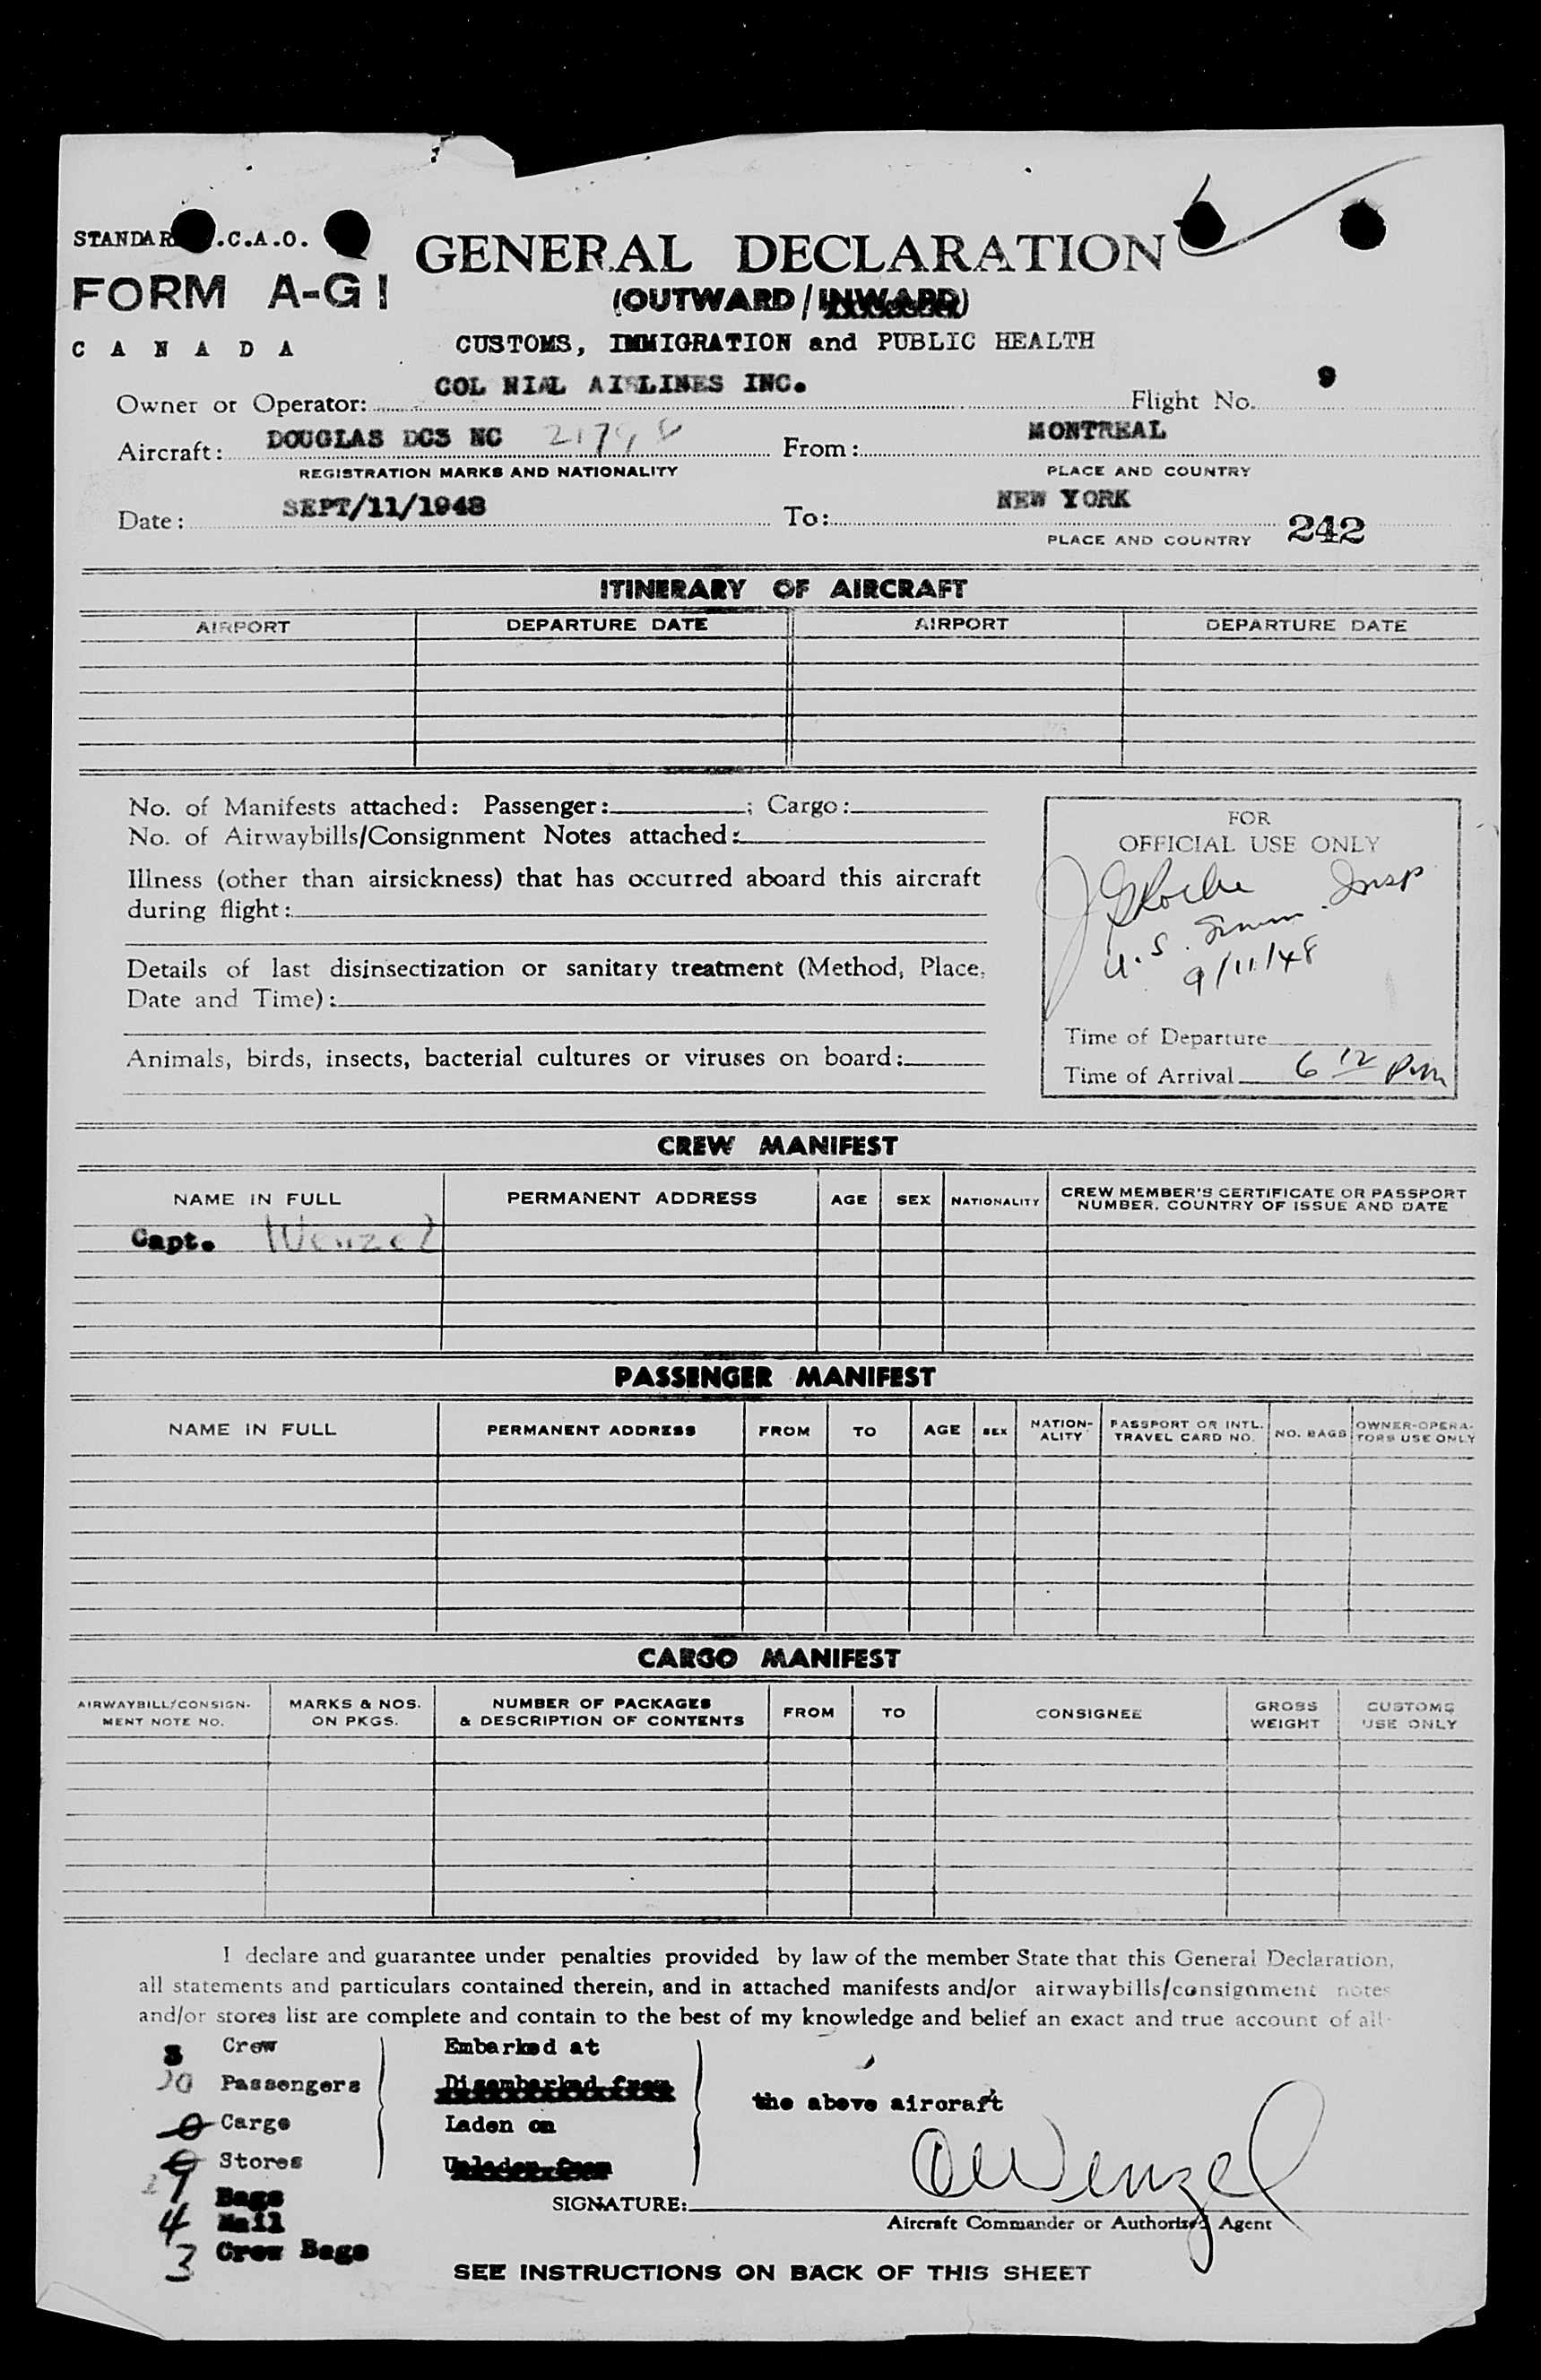 STANDAR .C.A.O.
GENERAL DECLARATION
FORM A-G1
(OUTWARD/INWARD)
CANADA
CUSTOMS, IMMIGRATION and PUBLIC HEALTH
Owner or Operator: COL NIAL AIRLINES INC. Flight No. 9
Aircraft: DOUGLAS DC3 NC From: MONTREAL
REGISTRATION MARKS AND NATIONALITY PLACE AND COUNTRY
Date: SEPT/11/1948 To: NEW YORK 242
PLACE AND COUNTRY
ITINERARY OF AIRCRAFT
AIRPORT DEPARTURE DATE AIRPORT DEPARTURE DATE
No. of Manifests attached: Passenger: ; Cargo:
No. of Airwaybills/Consignment Notes attached:
Illness (other than airsickness) that has occurred aboard this aircraft
during flight:
Details of last disinsectization or sanitary treatment (Method, Place,
Date and Time):
Animals, birds, insects, bacterial cultures or viruses on board:
FOR
OFFICIAL USE ONLY
Insp
U.S. Imm.
9/11/48
Time of Departure
Time of Arrival 6 12 P.m
CREW MANIFEST
NAME IN FULL PERMANENT ADDRESS AGE SEX NATIONALITY CREW MEMBER'S CERTIFICATE OR PASSPORT
NUMBER, COUNTRY OF ISSUE AND DATE
Capt. Wenzel
PASSENGER MANIFEST
NAME IN FULL PERMANENT ADDRESS FROM TO AGE SEX NATION-
ALITY PASSPORT OR INTL.
TRAVEL CARD NO. NO. BAGS OWNER-OPERA-
TORS USE ONLY
CARGO MANIFEST
AIRWAYBILL/CONSIGN-
MENT NOTE NO. MARKS & NOS.
ON PKGS. NUMBER OF PACKAGES
& DESCRIPTION OF CONTENTS FROM TO CONSIGNEE GROSS
WEIGHT CUSTOMS
USE ONLY
I declare and guarantee under penalties provided by law of the member State that this General Declaration,
all statements and particulars contained therein, and in attached manifests and/or airwaybills/consignment notes
and/or stores list are complete and contain to the best of my knowledge and belief an exact and true account of all
3 Crew Embarked at
Passengers Disembarked from
the above aircraft
0 Cargo Laden on
0 Stores Unladen from
Bags
4 Mail
3 Crew Bags
SIGNATURE: Wenzel
Aircraft Commander or Authorized Agent
SEE INSTRUCTIONS ON BACK OF THIS SHEET